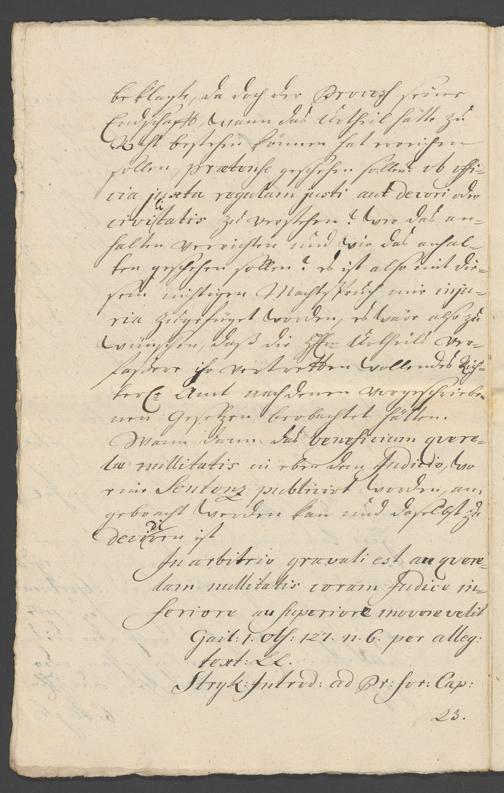 beklagte, da doch der Process seine
Endschafft, wann das Urtheil hätte zu
Recht bestehen können hat erreichen
sollen, praetense geschehen sollen? ob offi-
cia juxta regulam justi aut decori oder
civilitatis zu verstehen? wer das an-
halten verrichten und wie das anhal-
ten geschehen sollen? es ist also mit die-
sem nichtigen Machtspruch mir inju-
ria zugefüget worden, es wäre also zu
wünschen, daß die Urtheils Ver-
faßere ihr vertretten wollendes Rich-
ter Amt nach denen vorgeschriebe-
nen Gesetzen beobachtet hätten.
Wann dann das beneficium quere-
lae nullitatis in eben dem Judicio, wo
eine Sentenz publicirt worden, an-
gebracht werden kan und daselbst zu
decidiren ist
In arbitrio gravati est an quere-
lam nullitatis coram Judice in-
feriore an superiore movere velit
Gail: 1. obs: 127. n. 6. per alleg:
text: LL.
Stryk: Introd: ad Pr: for: Cap:
23.